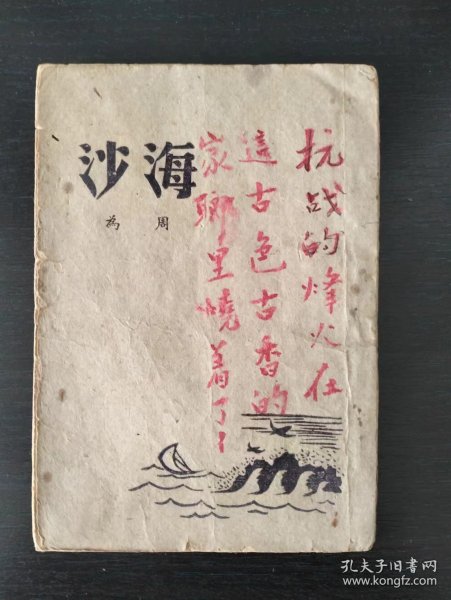 海沙
周為
抗战的烽火在
這古色古香的
家鄉里燒着了！
孔夫子旧书网
www.kongfz.com